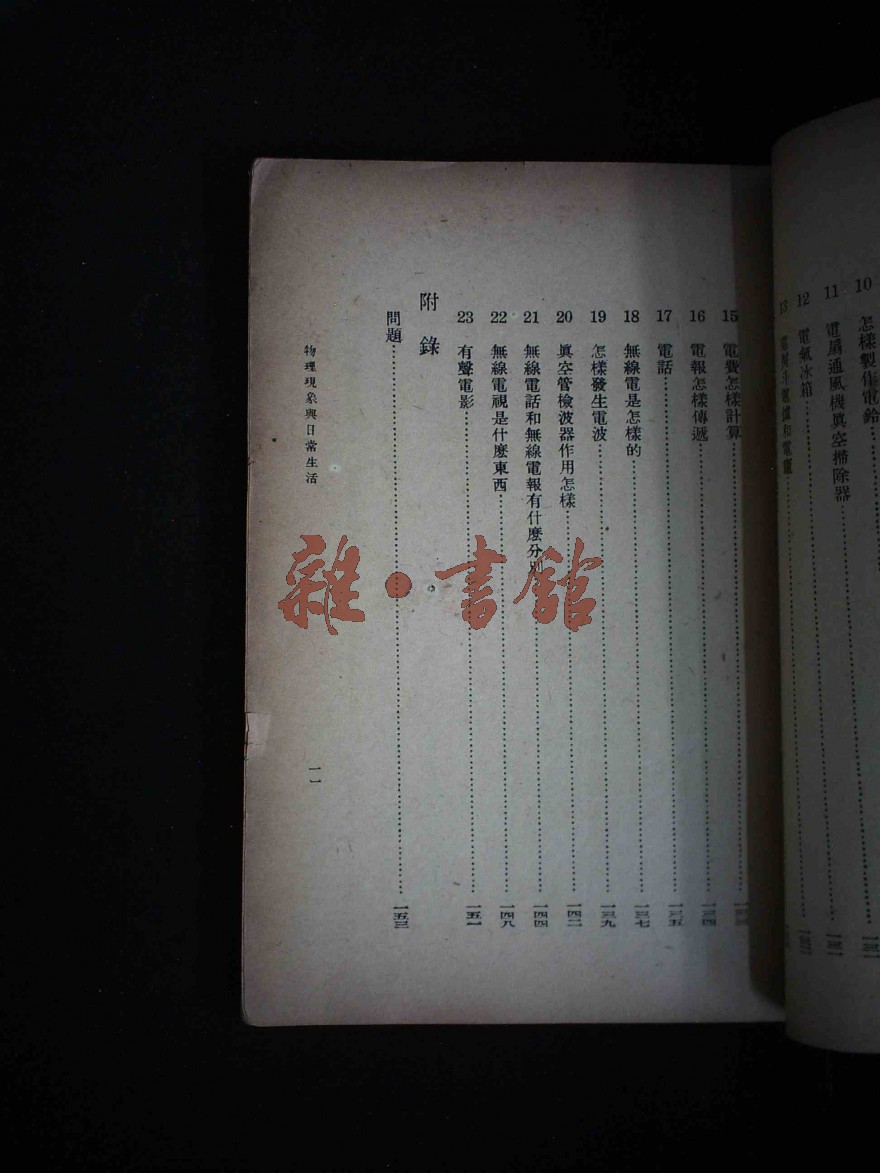 10 怎樣製作電鈴
11 電扇通風機眞空掃除器
12 電氣冰箱
15 電費怎樣計算
16 電報怎樣傳遞 一三四
17 電話 一三五
18 無線電是怎樣的 一三七
19 怎樣發生電波 一三九
20 眞空管檢波器作用怎樣 一四二
21 無線電話和無線電報有什麽分別 一四四
22 無線電視是什麽東西 一四八
23 有聲電影 一五一
附錄
問題 一五三
物理現象與日常生活
雜·書館